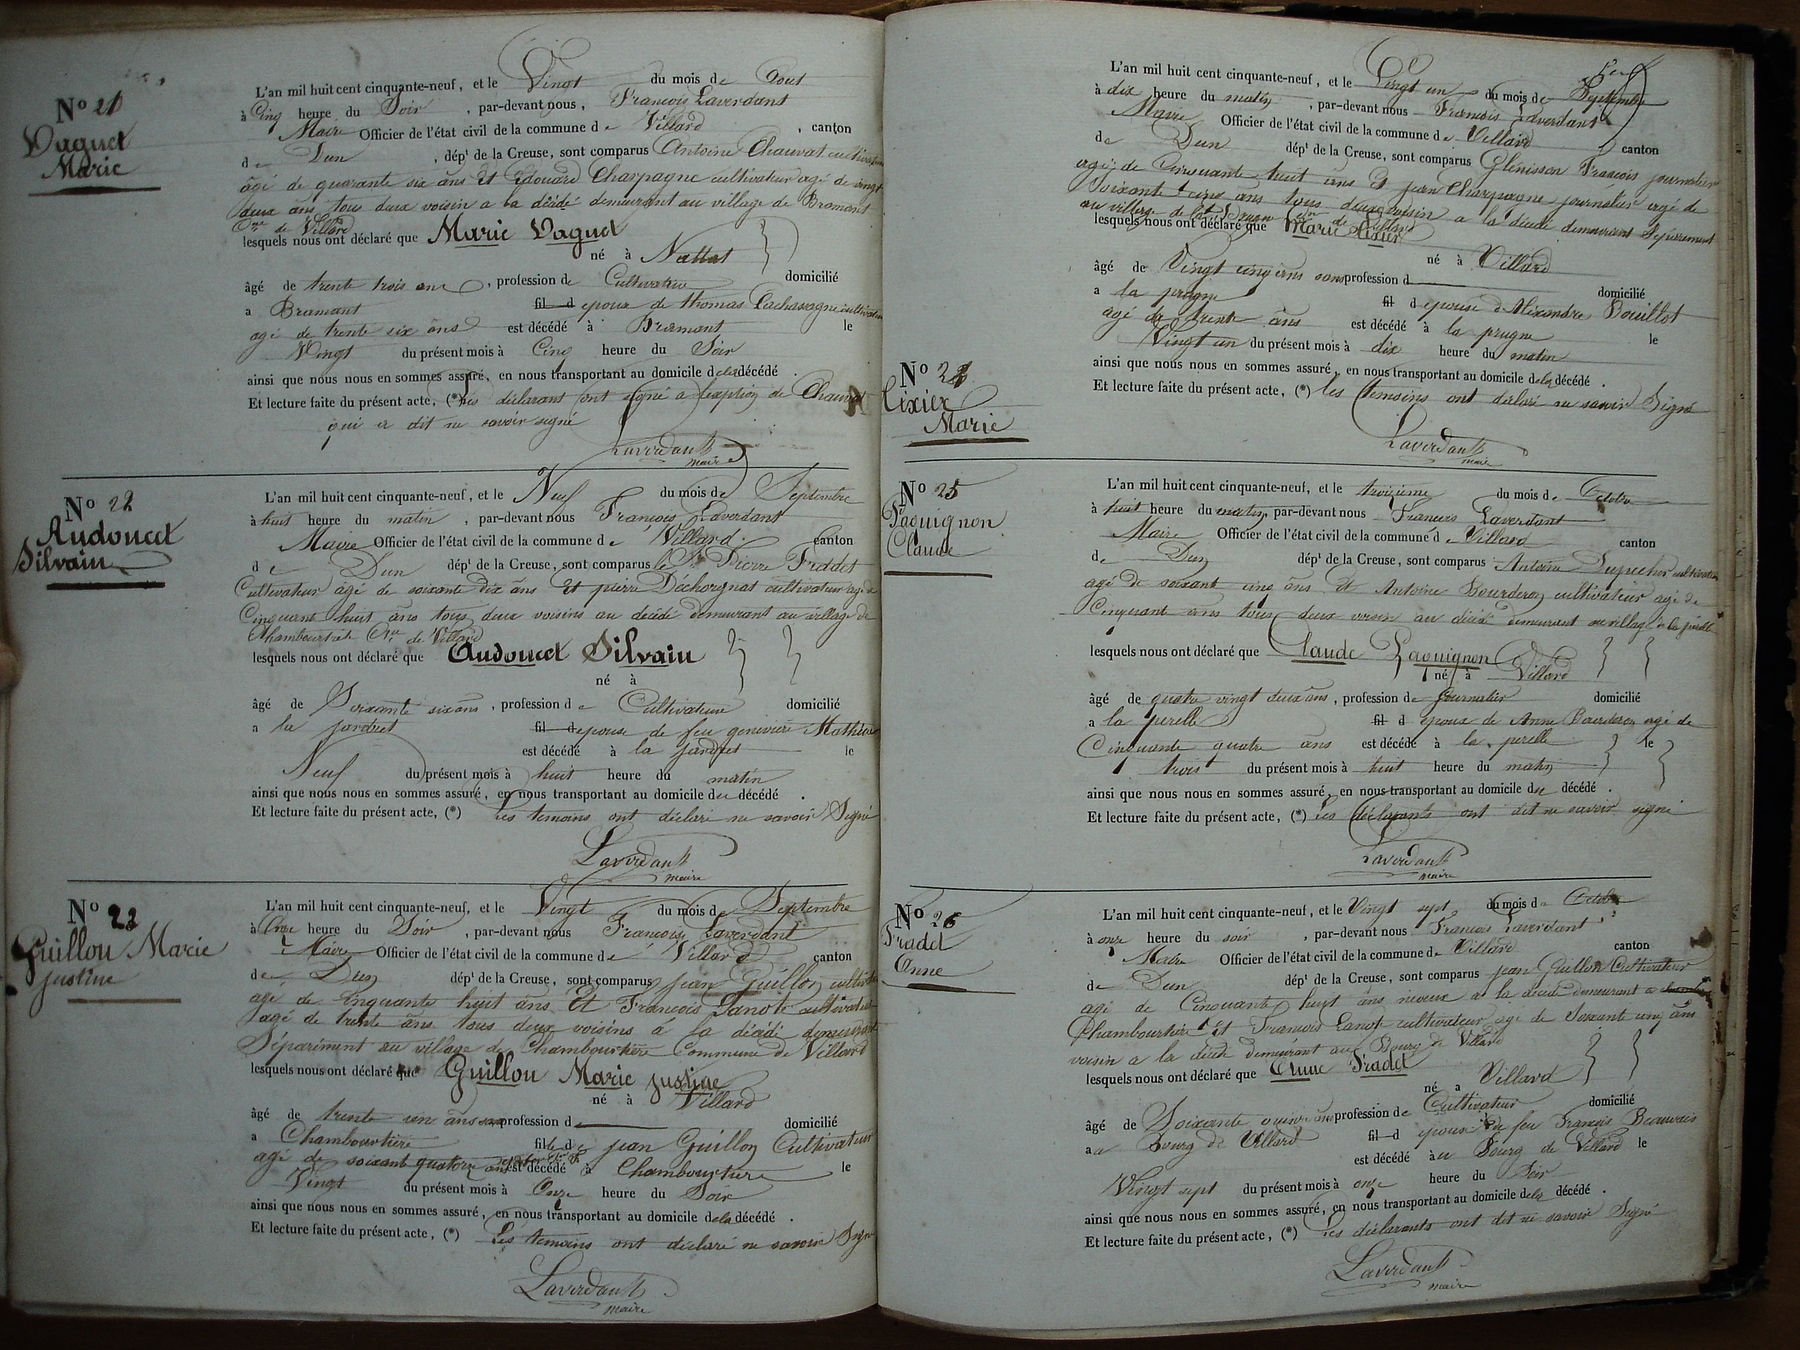 No 21
Vaguet
Marie
L'an mil huit cent cinquante-neuf, et le Vingt du mois de Aout
à Cinq heure du Soir, par-devant nous, François Laverdant
Maire Officier de l'état civil de la commune de Villard, canton
de Dun, dépt de la Creuse, sont comparus Antoine Chauvat cultivateur
agé de quarante six ans Et Edouard Charpagne cultivateur agé de vingt
deux ans, tous deux voisin a la décédé demeurant au village de Bramont
Cne de Villard
lesquels nous ont déclaré que Marie Vaguet
né à Naillat
âgé de trente trois ans, profession de Cultivatrice domicilié
a Bramont fil d epoux de thomas Lachassagne cultivateur
agé de trente six ans est décédé à Bramont le
Vingt du présent mois à Cinq heure du Soir
ainsi que nous nous en sommes assuré, en nous transportant au domicile dela décédé.
Et lecture faite du présent acte, (*) les déclarant ont signé a l'exeption de Chauvat
qui a dit ne savoir signé
Laverdant
maire
No 22
Audoucet
Silvain
L'an mil huit cent cinquante-neuf, et le Neuf du mois de Septembre
à huit heure du matin, par-devant nous François Laverdant
Maire Officier de l'état civil de la commune de Villard. canton
de Dun dépt de la Creuse, sont comparus le Sr Pierre Fradet
Cultivateur âgé de soixante dix ans Et pierre Déchorgnat cultivateur agé de
Cinquant huit ans tous deux voisins au décédé demeurant au village de
Chambourtièr Cne de Villard
lesquels nous ont déclaré que Audoucet Silvain
né à
âgé de Soixante six ans, profession de Cultivateur domicilié
a la jardret fil d epouse de feu genevieve Mathieu
est décédé à la jardret le
Neuf du présent mois à huit heure du matin
ainsi que nous nous en sommes assuré, en nous transportant au domicile du décédé.
Et lecture faite du présent acte, (*) Les temoins ont déclaré ne savoir Signé
Laverdant
maire
No 23
Guillou Marie
justine
L'an mil huit cent cinquante-neuf, et le Vingt du mois de Septembre
à Onze heure du Soir, par-devant nous François Laverdant
Maire Officier de l'état civil de la commune de Villard canton
de Dun dépt de la Creuse, sont comparus jean Guillou cultivateur
agé de cinquante huit ans Et François Lanote cultivateur
agé de trente ans tous deux voisins à la décédé demeurant
Séparément au village de Chambourtière Commune de Villard
lesquels nous ont déclaré que Guillou Marie justine
né à Villard
âgé de trente un ans sans profession d domicilié
a Chambourtière fille de jean Guillou Cultivateur
agé de soixant quatorze ans est décédé à Chambourtiere le
Vingt du présent mois à Onze heure du Soir
ainsi que nous nous en sommes assuré, en nous transportant au domicile dela décédé.
Et lecture faite du présent acte, (*) Les temoins ont déclaré ne savoir Signé
Laverdant
maire
No 24
Lixier
Marie
L'an mil huit cent cinquante-neuf, et le Vingt un du mois de Septembre
à dix heure du matin, par-devant nous François Laverdant
Maire Officier de l'état civil de la commune de Villard canton
de Dun dépt de la Creuse, sont comparus Glénisson François journalier
agé de Cinquante huit ans Et jean Charpagne journalier agé de
Soixant cinq ans tous deux voisin a la décédé demeurant Séparement
au village de
lesquels nous ont déclaré que Marie Lixier
né à Villard
âgé de Vingt cinq ans sans profession d domicilié
a la prugne fil d epouse d'Alixandre Bouillot
agé de trente ans est décédé à la prugne le
Vingt un du présent mois à dix heure du matin
ainsi que nous nous en sommes assuré, en nous transportant au domicile dela décédé.
Et lecture faite du présent acte, (*) les temoins ont déclaré ne savoir Signé
Laverdant
maire
No 25
Paquignon
Claude
L'an mil huit cent cinquante-neuf, et le troisième du mois de Octobre
à huit heure du matin, par-devant nous François Laverdant
Maire Officier de l'état civil de la commune de Villard canton
de Dun dépt de la Creuse, sont comparus Antoine cultivateur
agé de soixant cinq ans Et Antoine Bourderon cultivateur agé de
Cinquant ans tous deux voisin au décédé demeurant au village de la perelle
lesquels nous ont déclaré que Claude Paquignon
né à Villard
âgé de quatre vingt deux ans, profession de journalier domicilié
a la perelle fil d epoux de Anne Bourderon agé de
Cinquante quatre ans est décédé à la perelle le
trois du présent mois à huit heure du matin
ainsi que nous nous en sommes assuré, en nous transportant au domicile du décédé.
Et lecture faite du présent acte, (*) Les déclarants ont dit ne savoir signé
Laverdant
maire
No 26
Fradet
Anne
L'an mil huit cent cinquante-neuf, et le Vingt sept du mois de Octobre
à onze heure du soir, par-devant nous François Laverdant
Maire Officier de l'état civil de la commune de Villard canton
de Dun dépt de la Creuse, sont comparus jean Guillou Cultivateur
agé de Cinquante huit ans neveux a la décédé demeurant a
Chambourtière Et François Lanot cultivateur agé de Soixant cinq ans
voisin a la décédé demeurant au Bourg de Villard
lesquels nous ont déclaré que Anne Fradet
né à Villard
âgé de Soixante quinze ans profession de Cultivateur domicilié
a u Bourg de Villard fil d epoux de feu François Beauvais
est décédé au Bourg de Villard le
Vingt sept du présent mois à onze heure du Soir
ainsi que nous nous en sommes assuré, en nous transportant au domicile dela décédé.
Et lecture faite du présent acte, (*) Les déclarants ont dit ne savoir Signé
Laverdant
maire